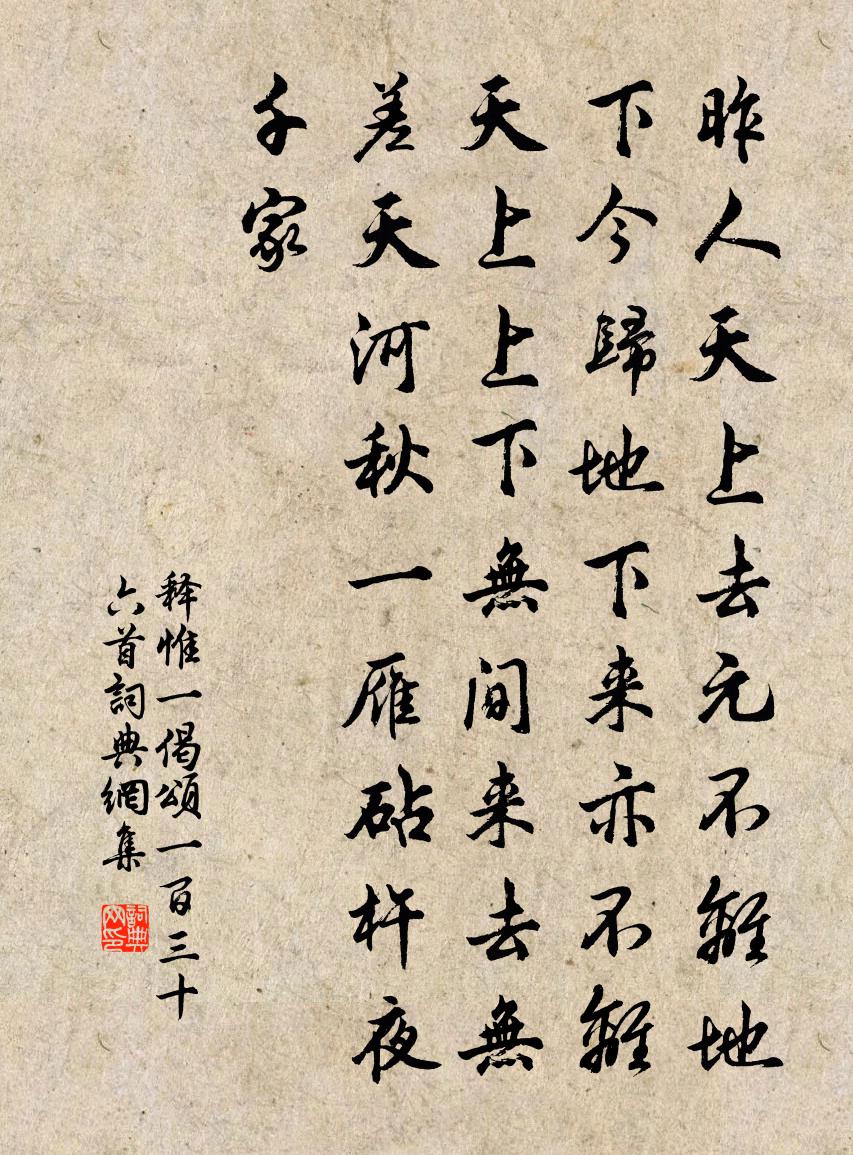 昨人天上去元不離地
下今歸地下来亦不離
天上上下無間来去無
差天河秋一雁砧杵夜
千家
释惟一偈頌一百三十
六首詞典網集
詞典网印